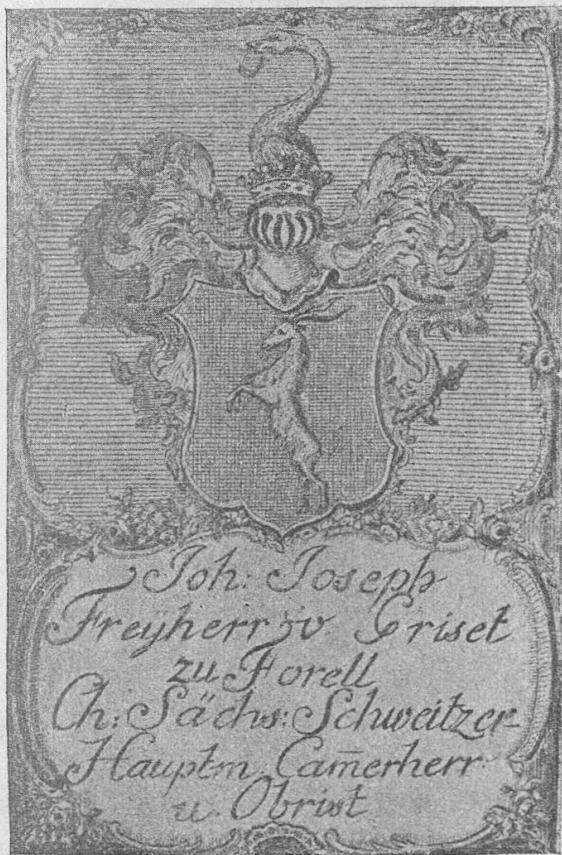 Joh: Joseph
Freÿherr zv Griset
zu Forell
Ch: Sächs: Schweitzer
Hauptm, Cam̄erherr
u. Obrist